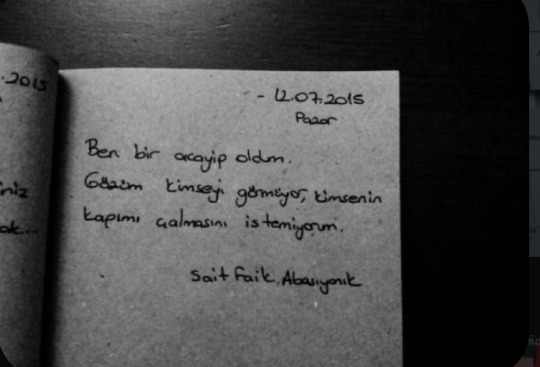 .2015
- 12.07.2015
Pazar
Ben bir acayip oldum.
Gözüm kimseyi görmüyor, kimsenin
kapımı çalmasını istemiyorum.
Sait Faik Abasıyanık
iniz
ak...